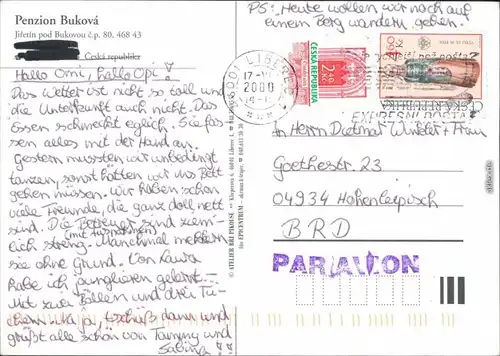 Penzion Buková
Jiřetín pod Bukovou č.p. 80, 468 43
Česká republika
Hallo Omi, hallo Opi!
Das Wetter ist nicht so toll und
die Unterkunft auch nicht. Das
Essen schmeckt eglich. Sie fas-
sen alles mit der Hand an.
Gestern mussten wir unbedingt
tanzen, sonst hätten wir ins Bett
gehen müssen. Wir haben schon
viele Freunde, die ganz doll nett
sind. Die Betreuer sind ziem-
(mit Ausnahmen)
lich streng. Manchmal meckern
sie ohne Grund. Von Laura
habe ich jonglieren gelernt
Mit zwei Bällen und drei Tü-
chern. Na ja, tschüß dann und
grüßt alle schön von Tammy und
Sabine!
© ATELIER JIŘÍ PIKOUS
EPICENTRUM
PS: Heute wollen wir noch auf
einem Berg wandern gehen!
LIBEREC
17-
2000
ČESKÁ REPUBLIKA
2,40
EXPRESNÍ POŠTA
An Herrn Dietmar Winkler + Frau
Goethestr. 23
04934 Hohenleipisch
BRD
PAR AVION